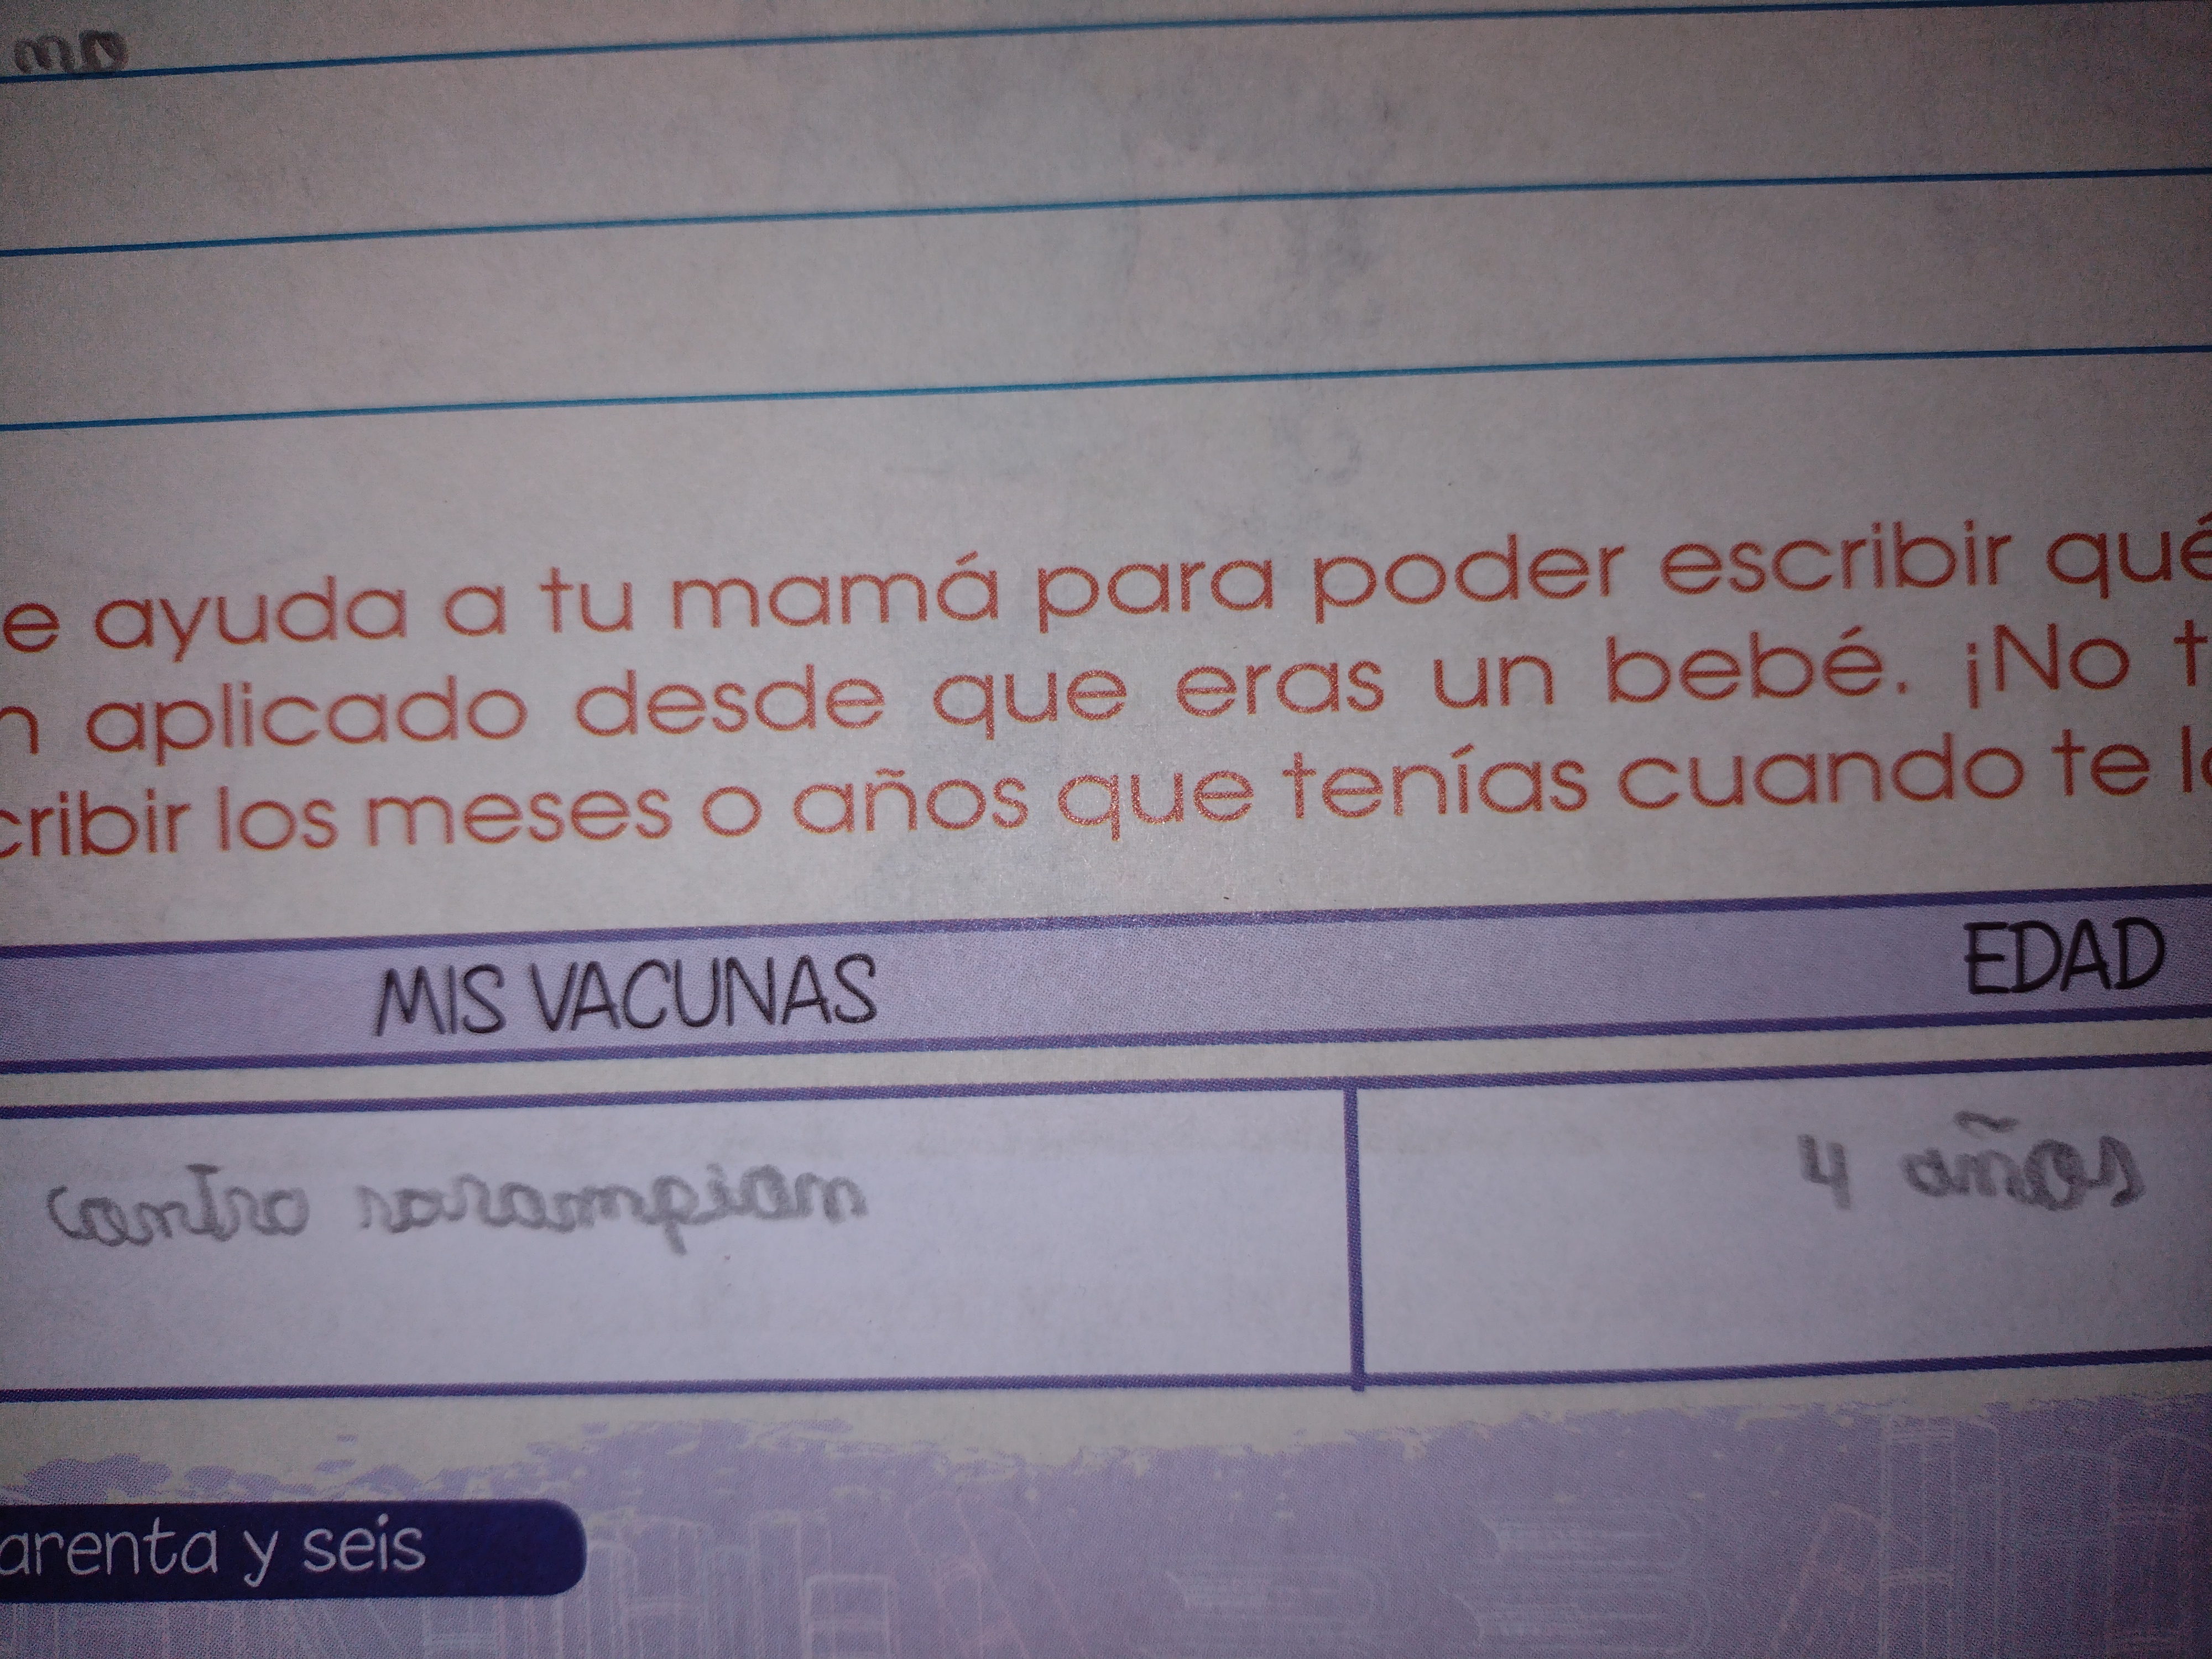 mo
e ayuda a tu mamá para poder escribir qué
n aplicado desde que eras un bebé. ¡No t
cribir los meses o años que tenías cuando te l
MIS VACUNAS EDAD
contra sarampion 4 años
arenta y seis